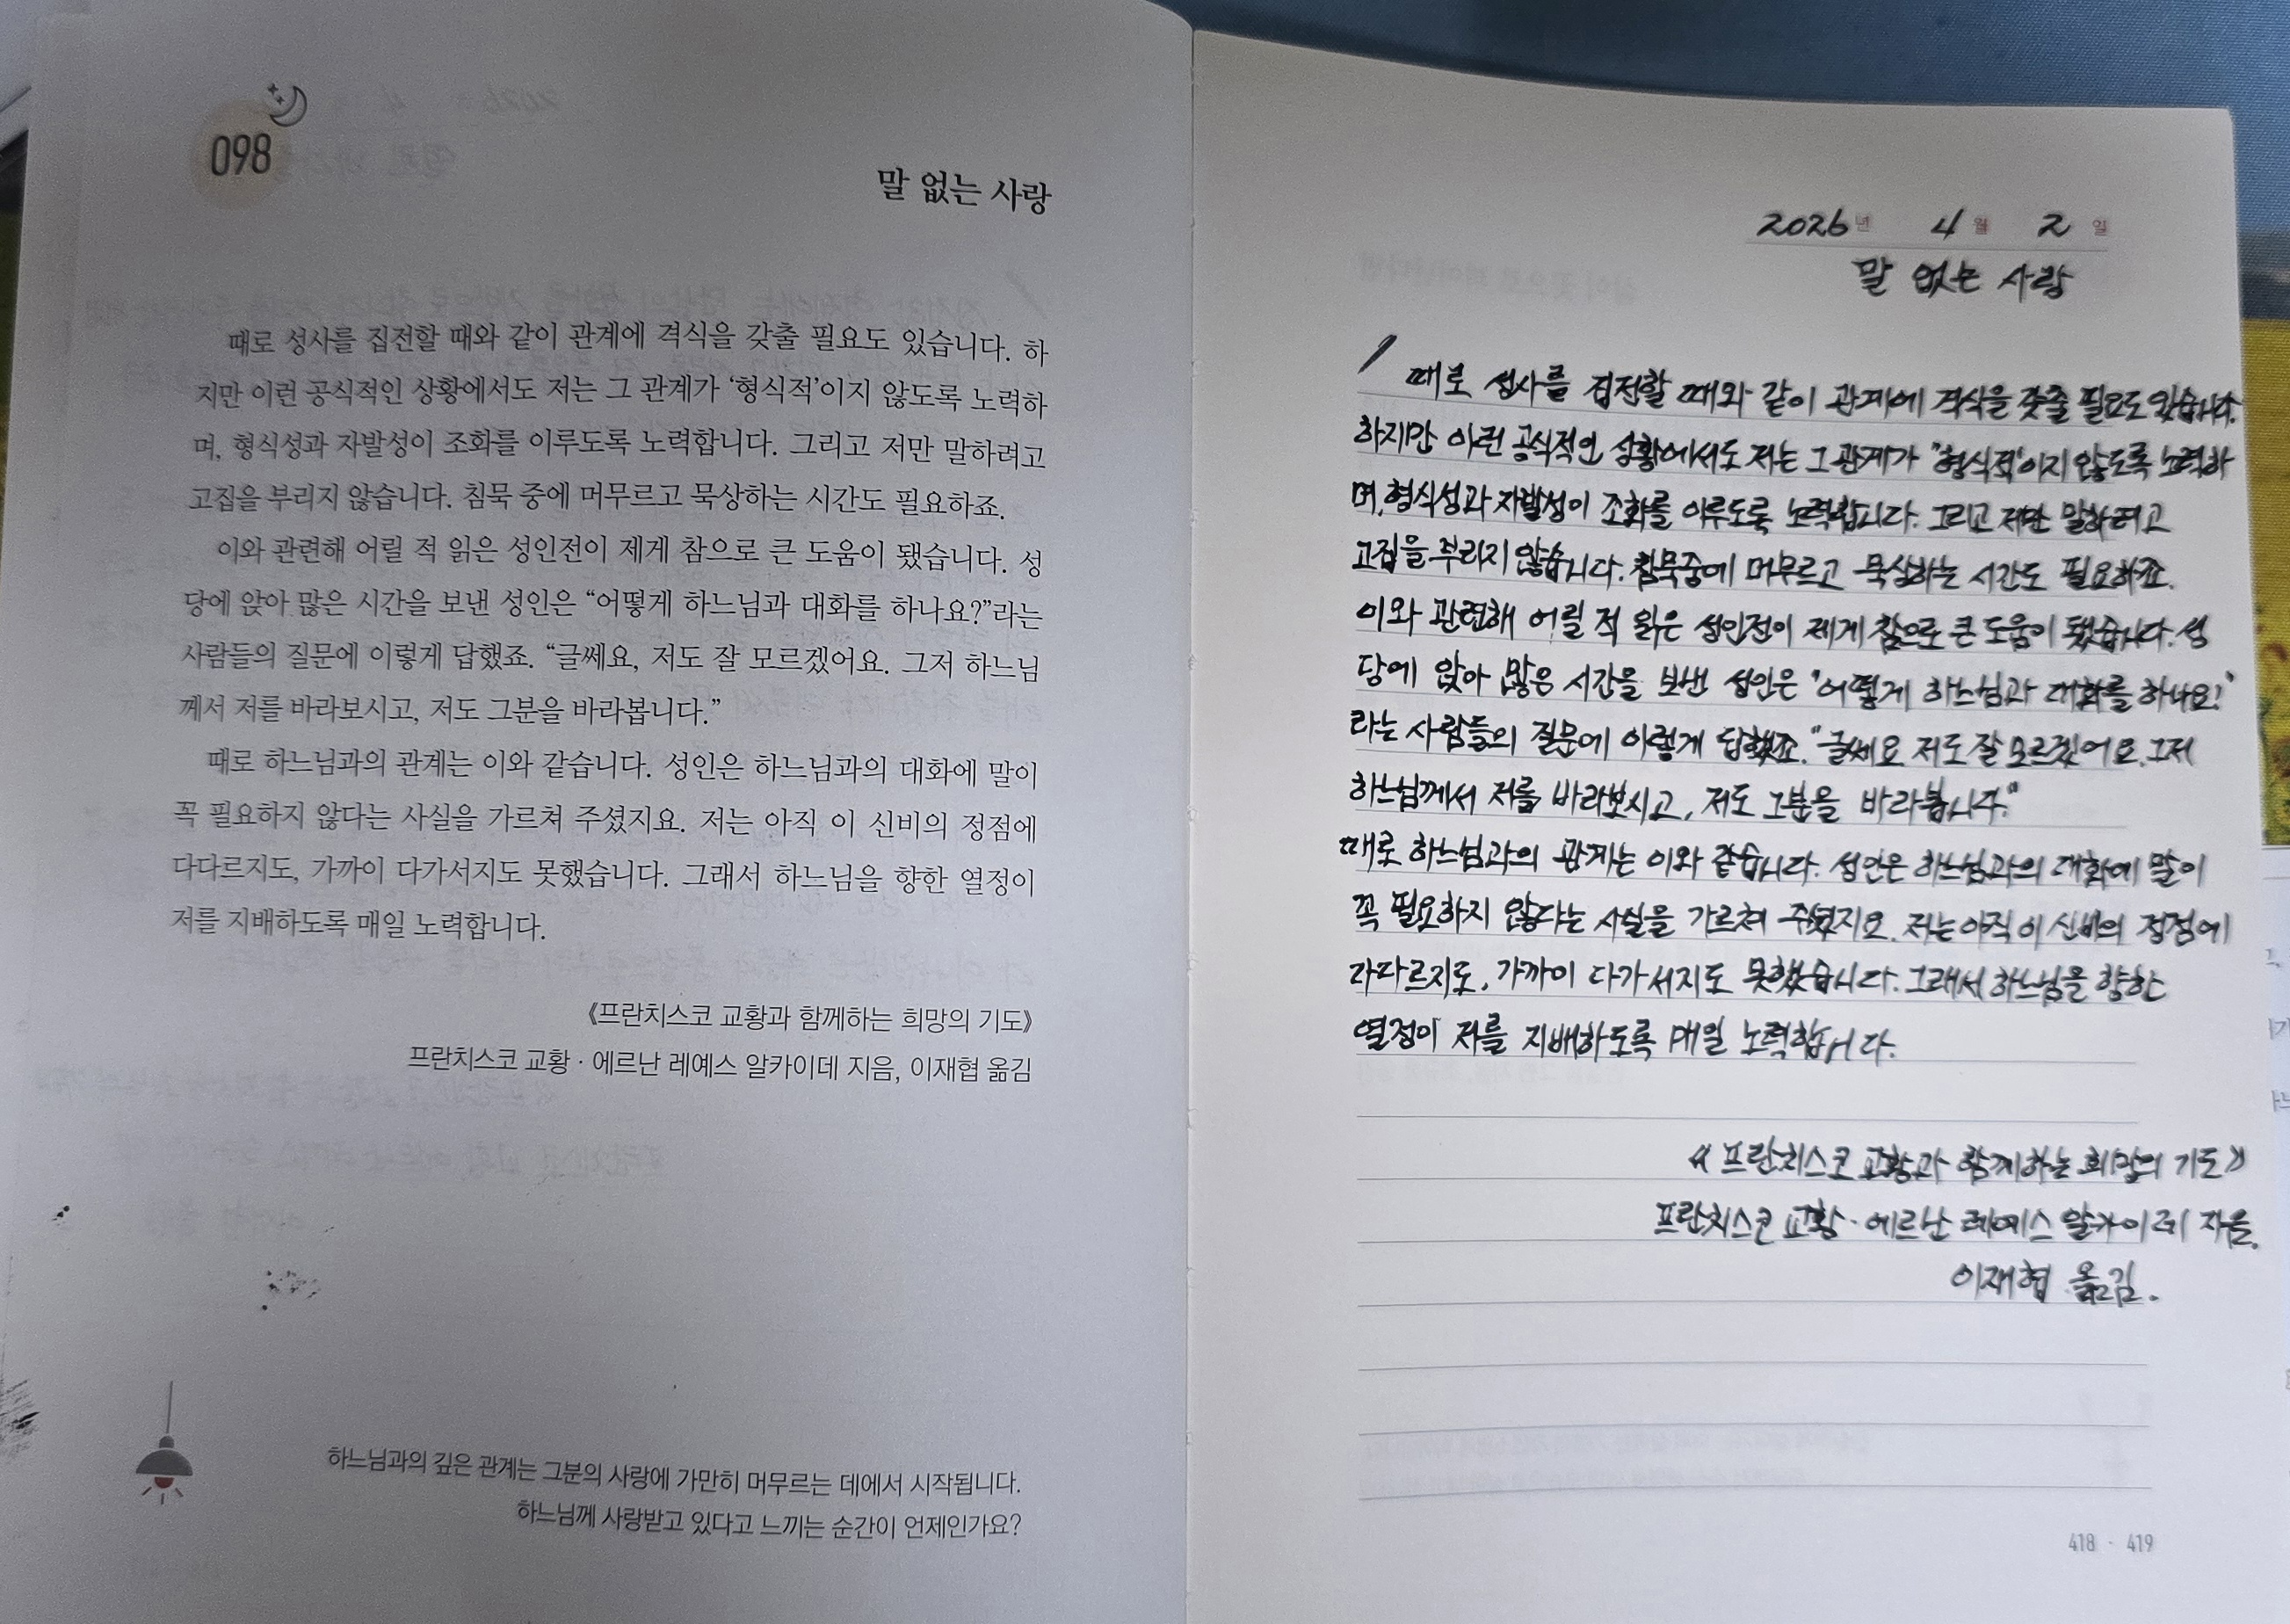 098
말 없는 사랑
때로 성사를 집전할 때와 같이 관계에 격식을 갖출 필요도 있습니다. 하
지만 이런 공식적인 상황에서도 저는 그 관계가 ‘형식적’이지 않도록 노력하
며, 형식성과 자발성이 조화를 이루도록 노력합니다. 그리고 저만 말하려고
고집을 부리지 않습니다. 침묵 중에 머무르고 묵상하는 시간도 필요하죠.
이와 관련해 어릴 적 읽은 성인전이 제게 참으로 큰 도움이 됐습니다. 성
당에 앉아 많은 시간을 보낸 성인은 “어떻게 하느님과 대화를 하나요?”라는
사람들의 질문에 이렇게 답했죠. “글쎄요, 저도 잘 모르겠어요. 그저 하느님
께서 저를 바라보시고, 저도 그분을 바라봅니다.”
때로 하느님과의 관계는 이와 같습니다. 성인은 하느님과의 대화에 말이
꼭 필요하지 않다는 사실을 가르쳐 주셨지요. 저는 아직 이 신비의 정점에
다다르지도, 가까이 다가서지도 못했습니다. 그래서 하느님을 향한 열정이
저를 지배하도록 매일 노력합니다.
《프란치스코 교황과 함께하는 희망의 기도》
프란치스코 교황 · 에르난 레예스 알카이데 지음, 이재협 옮김
하느님과의 깊은 관계는 그분의 사랑에 가만히 머무르는 데에서 시작됩니다.
하느님께 사랑받고 있다고 느끼는 순간이 언제인가요?
2026년 4월 2일
말 없는 사랑
때로 성사를 집전할 때와 같이 관계에 격식을 갖출 필요도 있습니다.
하지만 이런 공식적인 상황에서도 저는 그 관계가 "형식적'이지 않도록 노력하
며, 형식성과 자발성이 조화를 이루도록 노력합니다. 그리고 저만 말하려고
고집을 부리지 않습니다. 침묵중에 머무르고 묵상하는 시간도 필요하죠.
이와 관련해 어릴 적 읽은 성인전이 제게 참으로 큰 도움이 됐습니다. 성
당에 앉아 많은 시간을 보낸 성인은 "어떻게 하느님과 대화를 하나요?"
라는 사람들의 질문에 이렇게 답했죠. "글쎄요. 저도 잘 모르겠어요. 그저
하느님께서 저를 바라보시고, 저도 그분을 바라봅니다."
때로 하느님과의 관계는 이와 같습니다. 성인은 하느님과의 대화에 말이
꼭 필요하지 않다는 사실을 가르쳐 주셨지요. 저는 아직 이 신비의 정점에
다다르지도, 가까이 다가서지도 못했습니다. 그래서 하느님을 향한
열정이 저를 지배하도록 매일 노력합니다.
《프란치스코 교황과 함께하는 희망의 기도》
프란치스코 교황 · 에르난 레예스 알카이데 지음,
이재협 옮김.
418 · 419